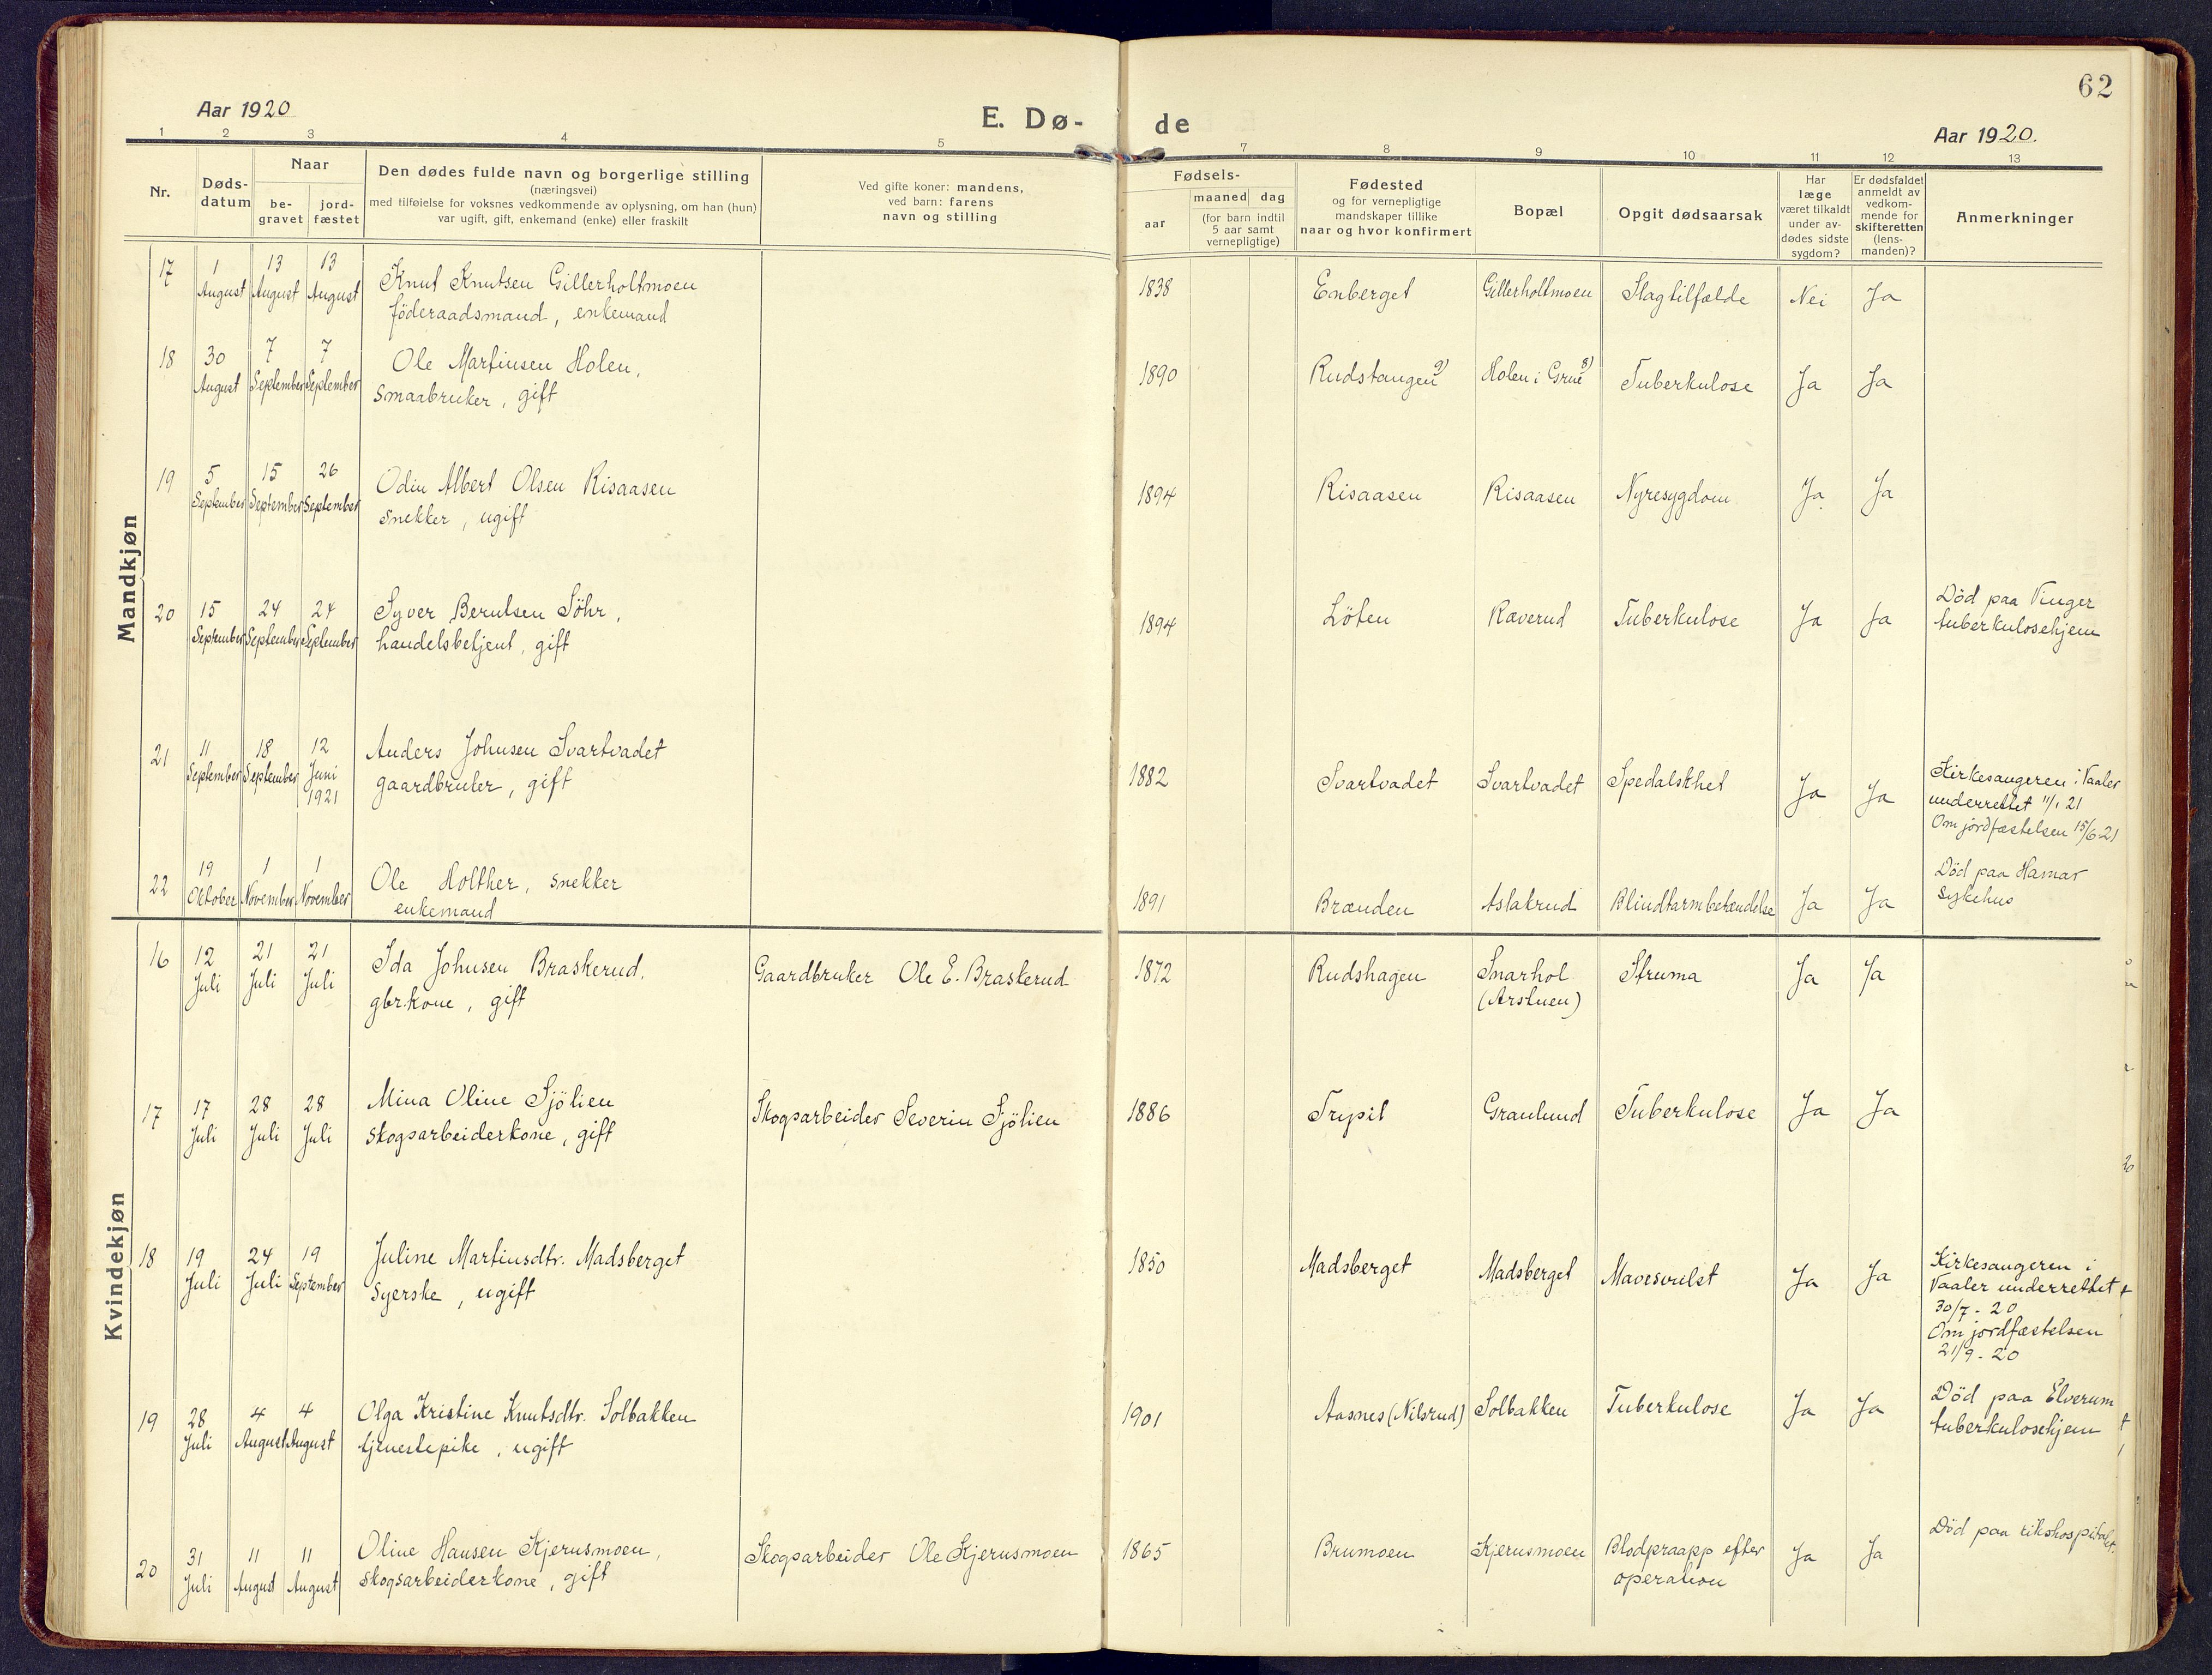 62
Aar 1920
E. Dø-
de
Aar 1920.
1 2 3 4 5
7 8 9 10 11 12 13
Nr.
Døds-
datum
Naar
be-
gravet
jord-
fæstet
Den dødes fulde navn og borgerlige stilling
(næringsvei)
med tilføielse for voksnes vedkommende av oplysning, om han (hun)
var ugift, gift, enkemand (enke) eller fraskilt
Ved gifte koner: mandens,
ved barn: farens
navn og stilling
Fødsels-
aar
maaned dag
(for barn indtil
5 aar samt
vernepligtige)
Fødested
og for vernepligtige
mandskaper tillike
naar og hvor konfirmert
Bopæl
Opgit dødsaarsak
Har
læge
været tilkaldt
under av-
dødes sidste
sygdom?
Er dødsfaldet
anmeldt av
vedkom-
mende for
skifteretten
(lens-
manden)?
Anmerkninger
Mandkjøn
17 1 13 13
August August August
Knut Knutsen Gillerholtmoen
föderaadsmand, enkemand
1838 Enberget Gillerholtmoen Slagtilfælde Nei Ja
18 30 7 7
August September September
Ole Martinsen Holen,
smaabruker, gift
1890 Rudstangen 9) Holen i Grue 8) Tuberkulose Ja Ja
19 5 15 26
September September September
Odin Albert Olsen Risaasen
snekker, ugift
1894 Risaasen Risaasen Nyresygdom Ja Ja
20 15 24 24
September September September
Syver Berntsen Söhr,
handelsbetjent, gift
1894 Löten Raverud Tuberkulose Ja Ja
Död paa Vinger
tuberkulosehjem
21 11 18 12
September September Juni
1921
Anders Johnsen Svartvadet
gaardbruker, gift
1882 Svartvadet Svartvadet Spedalskhet Ja Ja
Kirkesangeren i Vaaler
underrettet 11/1 21
Om jordfæstelsen 15/6-21
22 19 1 1
Oktober November November
Ole Holther, snekker
enkemand
1891 Brænden Aslakrud Blindtarmbetændelse Ja Ja
Död paa Hamar
sykehus
Kvindekjøn
16 12 21 21
Juli Juli Juli
Ida Johnsen Braskerud,
gbr.kone, gift
Gaardbruker Ole E. Braskerud
1872 Rudshagen Snarhol
(Arstuen)
Struma Ja Ja
17 17 28 28
Juli Juli Juli
Mina Oline Sjölien
skogsarbeiderkone, gift
Skogsarbeider Severin Sjölien
1886 Trysil Granlund Tuberkulose Ja Ja
18 19 24 19
Juli Juli September
Juline Martinsdtr. Madsberget
Syerske, ugift
1850 Madsberget Madsberget Mavesvulst Ja Ja
Kirkesangeren i
Vaaler underrettet
30/7-20
Om jordfæstelsen
21/9-20
19 28 4 4
Juli August August
Olga Kristine Knutsdtr. Solbakken
tjenestepike, ugift
1901 Aasnes (Nilsrud) Solbakken Tuberkulose Ja Ja
Död paa Elverum
tuberkulosehjem
20 31 11 11
Juli August August
Oline Hansen Kjernsmoen,
skogsarbeiderkone, gift
Skogsarbeider Ole Kjernsmoen
1865 Brumoen Kjernsmoen Blodpraapp efter
operation
Ja Ja
Död paa rikshospitalet.